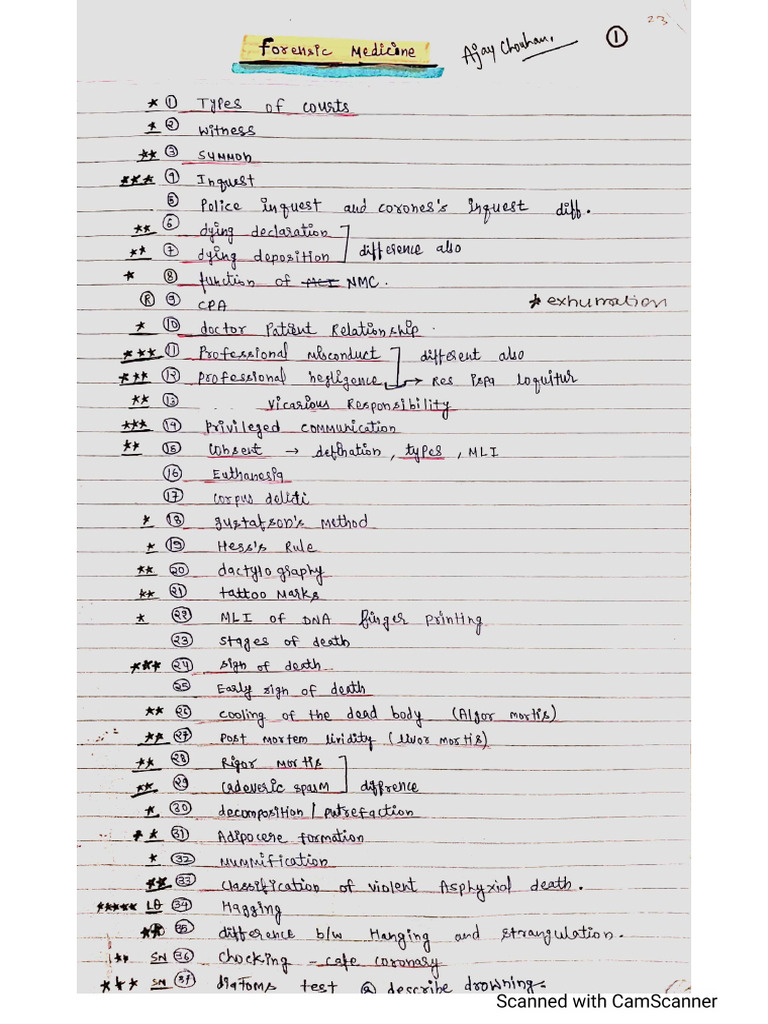 23
Forensic Medicine Ajay Chouhan. ①
* ① Types of courts
* ② witness
** ③ summon
*** ④ Inquest
⑤ Police inquest and corones's inquest diff.
** ⑥ dying declaration
** ⑦ dying deposition difference also
* ⑧ function of NMC.
Ⓡ ⑨ CPA * exhumation
* ⑩ doctor Patient Relationship.
*** ⑪ Professional misconduct different also
*** ⑫ professional negligence → Res Ipsa loquitur
** ⑬ vicarious Responsibility
*** ⑭ Privileged communication
** ⑮ Consent → defination, types, MLI
⑯ Euthanesia
⑰ corpus delicti
* ⑱ gustafson's method
* ⑲ Hess's Rule
** ⑳ dactylography
** ㉑ tattoo marks
* ㉒ MLI of DNA finger printing
㉓ stages of death
*** ㉔ sign of death
㉕ Early sign of death
** ㉖ cooling of the dead body (Algor mortis)
** ㉗ Post mortem lividity (livor mortis)
** ㉘ Rigor mortis
** ㉙ cadaveric spasm diffrence
* ㉚ decomposition / putrefaction
** ㉛ Adipocere formation
* ㉜ mummification
** ㉝ classification of violent Asphyxial death.
***** LQ ㉞ Hagging
** ㉟ difference b/w Hanging and strangulation.
** SN ㊱ chocking - cafe coronary
*** SN ㊲ diatoms test @ describe drowning.
Scanned with CamScanner